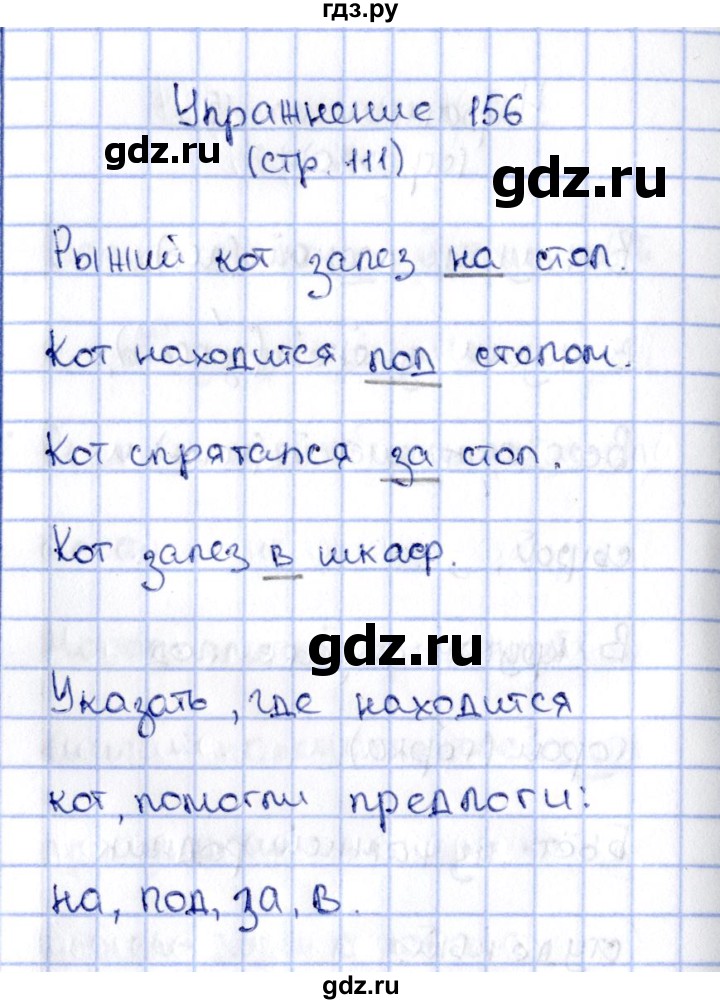 гдз.ру
Упражнение 156
gdz.ru
(стр. 111)
gdz.ru
Рыжий кот залез на стол.
Кот находится под столом.
Кот спрятался за стол.
Кот залез в шкаф.
gdz.ru
Указать, где находится
кот, помогли предлоги:
на, под, за, в.
gdz.ru